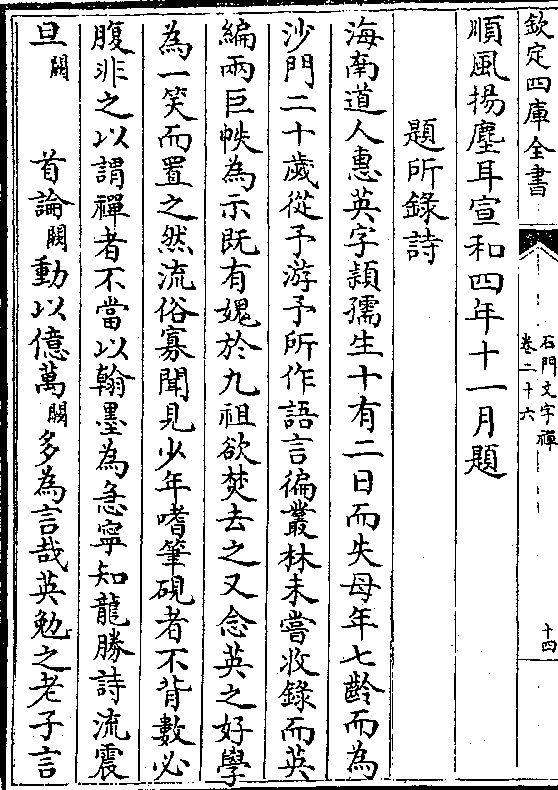 欽定四庫全書
石門文字禪
卷二十六
十四
順風揚塵耳宣和四年十一月題
題所錄詩
海南道人惠英字頴孺生十有二日而失母年七齡而為
沙門二十歲從予游予所作語言徧叢林未嘗收錄而英
編兩巨帙為示既有媿於九祖欲焚去之又念英之好學
為一笑而置之然流俗寡聞見少年嗜筆硯者不背數必
腹非之以謂禪者不當以翰墨為急寧知龍勝詩流震
旦闕 首論闕動以億萬闕多為言哉英勉之老子言